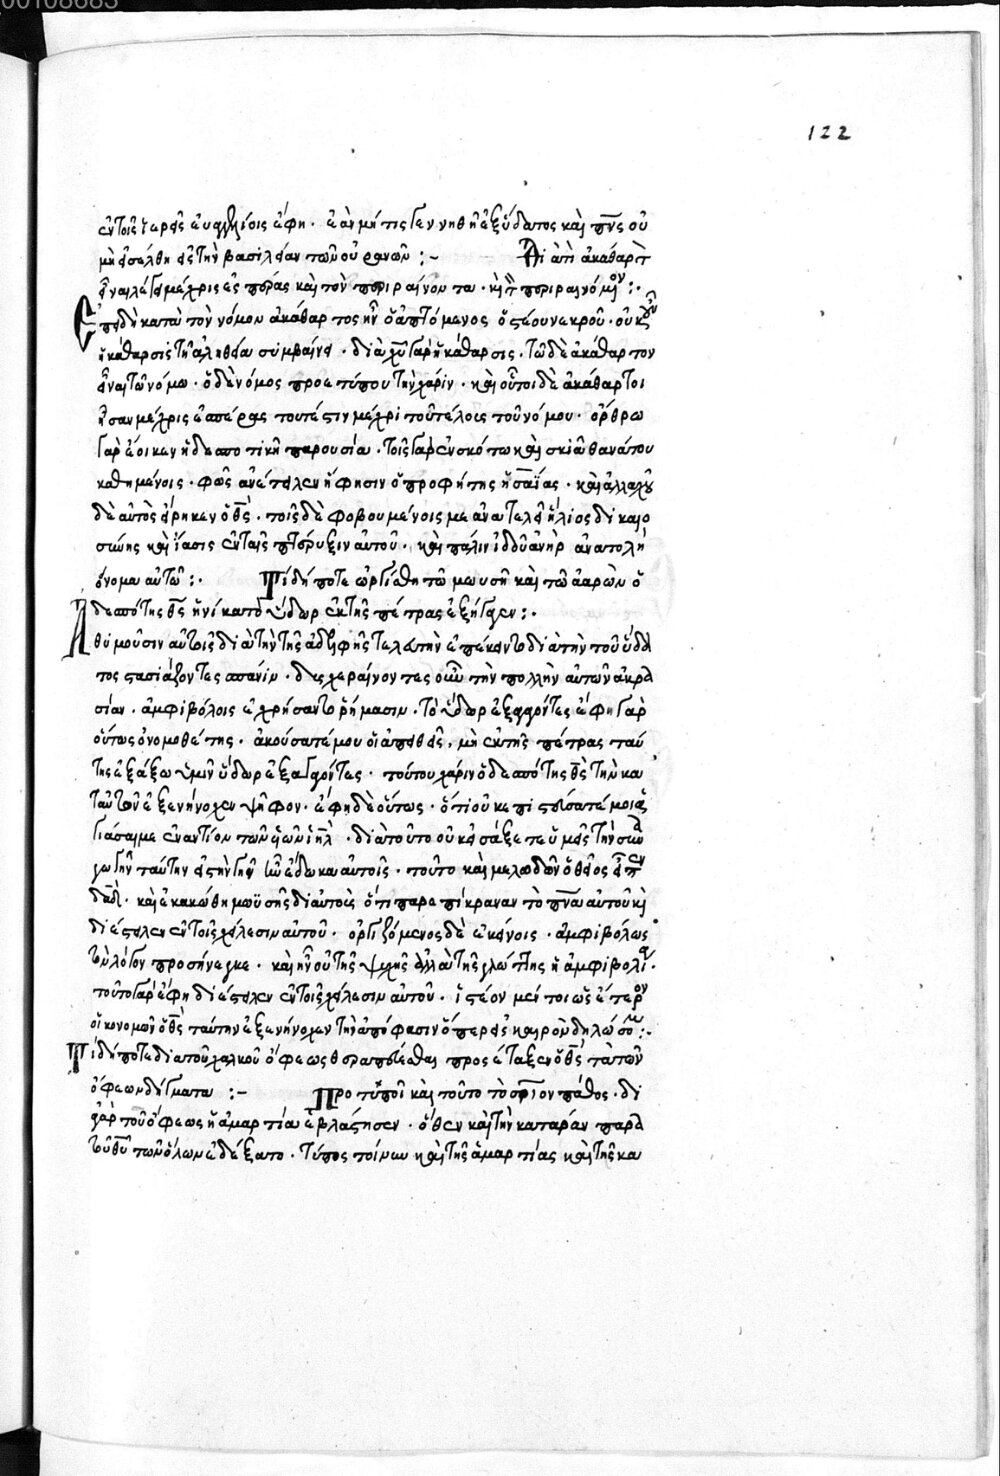 122
ἐν τοῖς ἱεροῖς εὐαγγελίοις ἔφη · ἐὰν μή τις γεννηθῇ ἐξ ὕδατος καὶ πνς οὐ
μὴ εἰσέλθῃ εἰς τὴν βασιλείαν τῶν οὐρανῶν :~ ἀκάθαρτ
εἶναι λέγει μέχρις ἑσπέρας καὶ τὸν περιραίνοντα · κὶ τὸν περιραινόμενον :·
Ἐπειδὴ κατὰ τὸν νόμον ἀκάθαρτος ἦν ὁ ἁπτόμενος ὀστέου νεκροῦ · οὐκ
ἡ κάθαρσις τῇ ἀληθείᾳ συμβαίνει · διὰ χῦ γὰρ ἡ κάθαρσις · τὸ δὲ ἀκάθαρτον
εἶναι τῷ νόμω · ὁ δὲ νόμος προετύπου τὴν χάριν · καὶ οὗτοι δὲ ἀκάθαρτοι
ἦσαν μέχρις ἑσπέρας τουτέστιν μέχρι τοῦ τέλους τοῦ νόμου · ὄρθρω
γὰρ ἔοικεν ἡ δεσποτικὴ παρουσία · τοῖς γὰρ ἐν σκότω καὶ σκιᾷ θανάτου
καθημένοις · φῶς ἀνέτειλεν ἥ φησιν ὁ προφήτης ἡσαΐας · καὶ ἀλλαχοῦ
δὲ αὐτὸς εἴρηκεν ὁ θς · τοῖς δὲ φοβουμένοις με ἀνατελεῖ ἥλιος δικαιο
σύνης καὶ ἴασις ἐν ταῖς πτέρυξιν αὐτοῦ · καὶ πάλιν ἰδοῦ ἀνὴρ ἀνατολὴ
ὄνομα αὐτῶ :· Τί δήποτε ὠργίσθη τῶ μωυσῆ καὶ τῶ ἀαρὼν ὁ
δεσπότης θς ἡνίκα τὸ ὕδωρ ἐκ τῆς πέτρας ἐξήγαγεν :·
Ἀθυμοῦσιν αὐτοῖς διὰ τὴν τῆς ἀδελφῆς τελευτὴν ἐπέκειντο διὰ τὴν τοῦ ὕδα
τος στασιάζοντες σπάνιν · δυσχεραίνοντες οὖν τὴν πολλὴν αὐτῶν ἀκρα
σίαν · ἀμφιβόλοις ἐχρήσαντο ῥήμασιν · τὸ ὕδωρ ἐξαγαγόντες ἔφη γὰρ
οὕτως ὁ νομοθέτης · ἀκούσατέ μου οἱ ἀπειθεῖς, μὴ ἐκ τῆς πέτρας ταύ
της ἐξάξω ὑμῖν ὕδωρ ἐξαγαγόντες · τούτου χάριν ὁ δεσπότης θς τὴν κα
τ' αὐτῶν ἐξενήνοχεν ψῆφον · ἔφη δὲ οὕτως · ὅτι οὐκ ἐπιστεύσατέ μοι
ἁγιάσαι με ἐναντίον τῶν υἱῶν ιηλ · διὰ τοῦτο οὐκ εἰσάξετε ὑμεῖς τὴν συνα
γωγὴν ταύτην εἰς τὴν γῆν ἣν ἔδωκα αὐτοῖς · τοῦτο καὶ μελωδῶν ὁ θεῖος εἶπεν
δαδ · καὶ ἐκακώθη μωϋσῆς δι' αὐτοὺς ὅτι παρεπίκραναν τὸ πνα αὐτοῦ κὶ
διέστειλεν ἐν τοῖς χείλεσιν αὐτοῦ · ὀργιζόμενος δὲ ἐκείνοις · ἀμφιβόλως
τὸν λόγον προσήνεγκε · καὶ ἦν οὐ τῆς ψυχῆς ἀλλὰ τῆς γλώττης ἡ ἀμφιβολία ·
τοῦτο γὰρ ἔφη διέστειλεν ἐν τοῖς χείλεσιν αὐτοῦ · ἰστέον μέντοι ὡς ἕτερον
οἰκονομῶν ὁ θς ταύτην ἐξενήνοχεν τὴν ἀπόφασιν ὅπερ εἰς καιρὸν δηλώσομεν :·
Τί δήποτε διὰ τοῦ χαλκοῦ ὄφεως θεραπεύεσθαι προσέταξεν ὁ θς τὰ τῶν
ὄφεων δήγματα :~ Προτυποῖ καὶ τοῦτο τὸ σριον πάθος · δι
γὰρ τοῦ ὄφεως ἡ ἁμαρτία ἐβλάστησεν · ὅθεν καὶ τὴν κατάραν παρὰ
τοῦ θῦ τῶν ὅλων ἐδέξατο · τύπος τοίνυν καὶ τῆς ἁμαρτίας καὶ τῆς κα